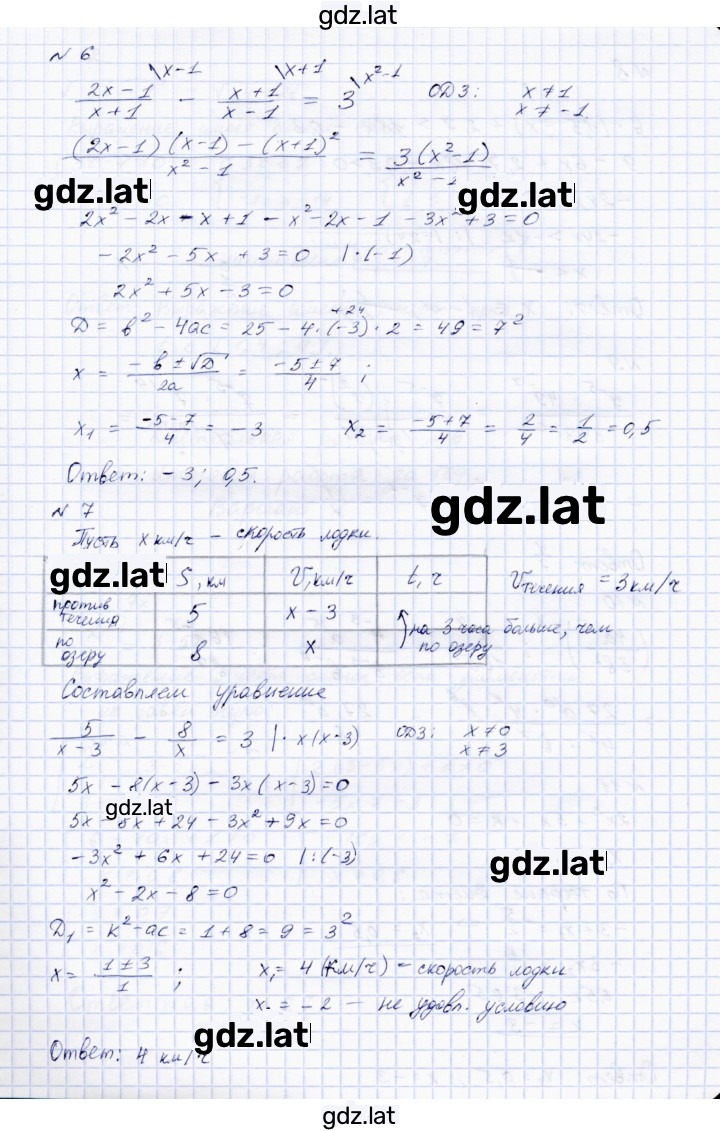 gdz.lat
N 6
\x-1 \x+1 \x²-1
(2x-1)/(x+1) - (x+1)/(x-1) = 3 ОДЗ: x≠1
x≠-1.
((2x-1)(x-1)-(x+1)²)/(x²-1) = 3(x²-1)/(x²-1)
gdz.lat gdz.lat
2x²-2x-x+1-x²-2x-1-3x²+3=0
-2x²-5x+3=0 |·(-1)
2x²+5x-3=0
+24
D=b²-4ac=25-4·(-3)·2=49=7²
x = (-b±√D)/2a = (-5±7)/4 ;
x₁ = (-5-7)/4 = -3 x₂ = (-5+7)/4 = 2/4 = 1/2 = 0,5
Ответ: -3; 0,5.
gdz.lat
N 7
Пусть x км/ч - скорость лодки.
gdz.lat S, км V, км/ч t, ч Vтечения = 3км/ч
против течения 5 x-3
на 3 часа больше, чем по озеру
по озеру 8 x
Составляем уравнение
5/(x-3) - 8/x = 3 |·x(x-3) ОДЗ: x≠0
x≠3
5x-8(x-3)-3x(x-3)=0
gdz.lat
5x-8x+24-3x²+9x=0
-3x²+6x+24=0 |:(-3)
gdz.lat
x²-2x-8=0
D₁=k²-ac=1+8=9=3²
x = (1±3)/1 ; x₁=4 (км/ч) - скорость лодки
x. = -2 - не удовл. условию
gdz.lat
Ответ: 4 км/ч
gdz.lat